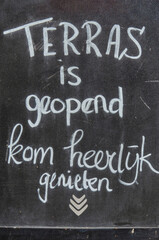 TERRAS
is
geopend
kom heerlijk
genieten